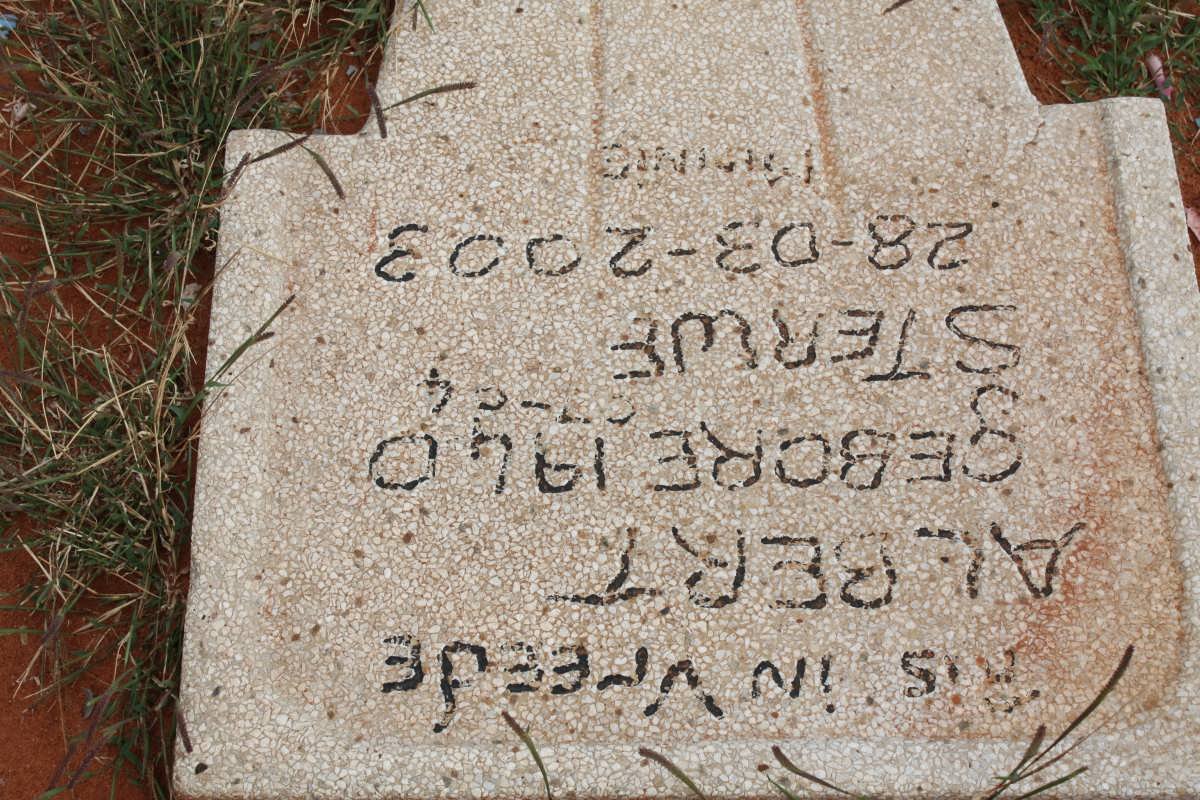 Rus in vreede
ALBERT
GEBORE 1940
STERWE
28-03-2003